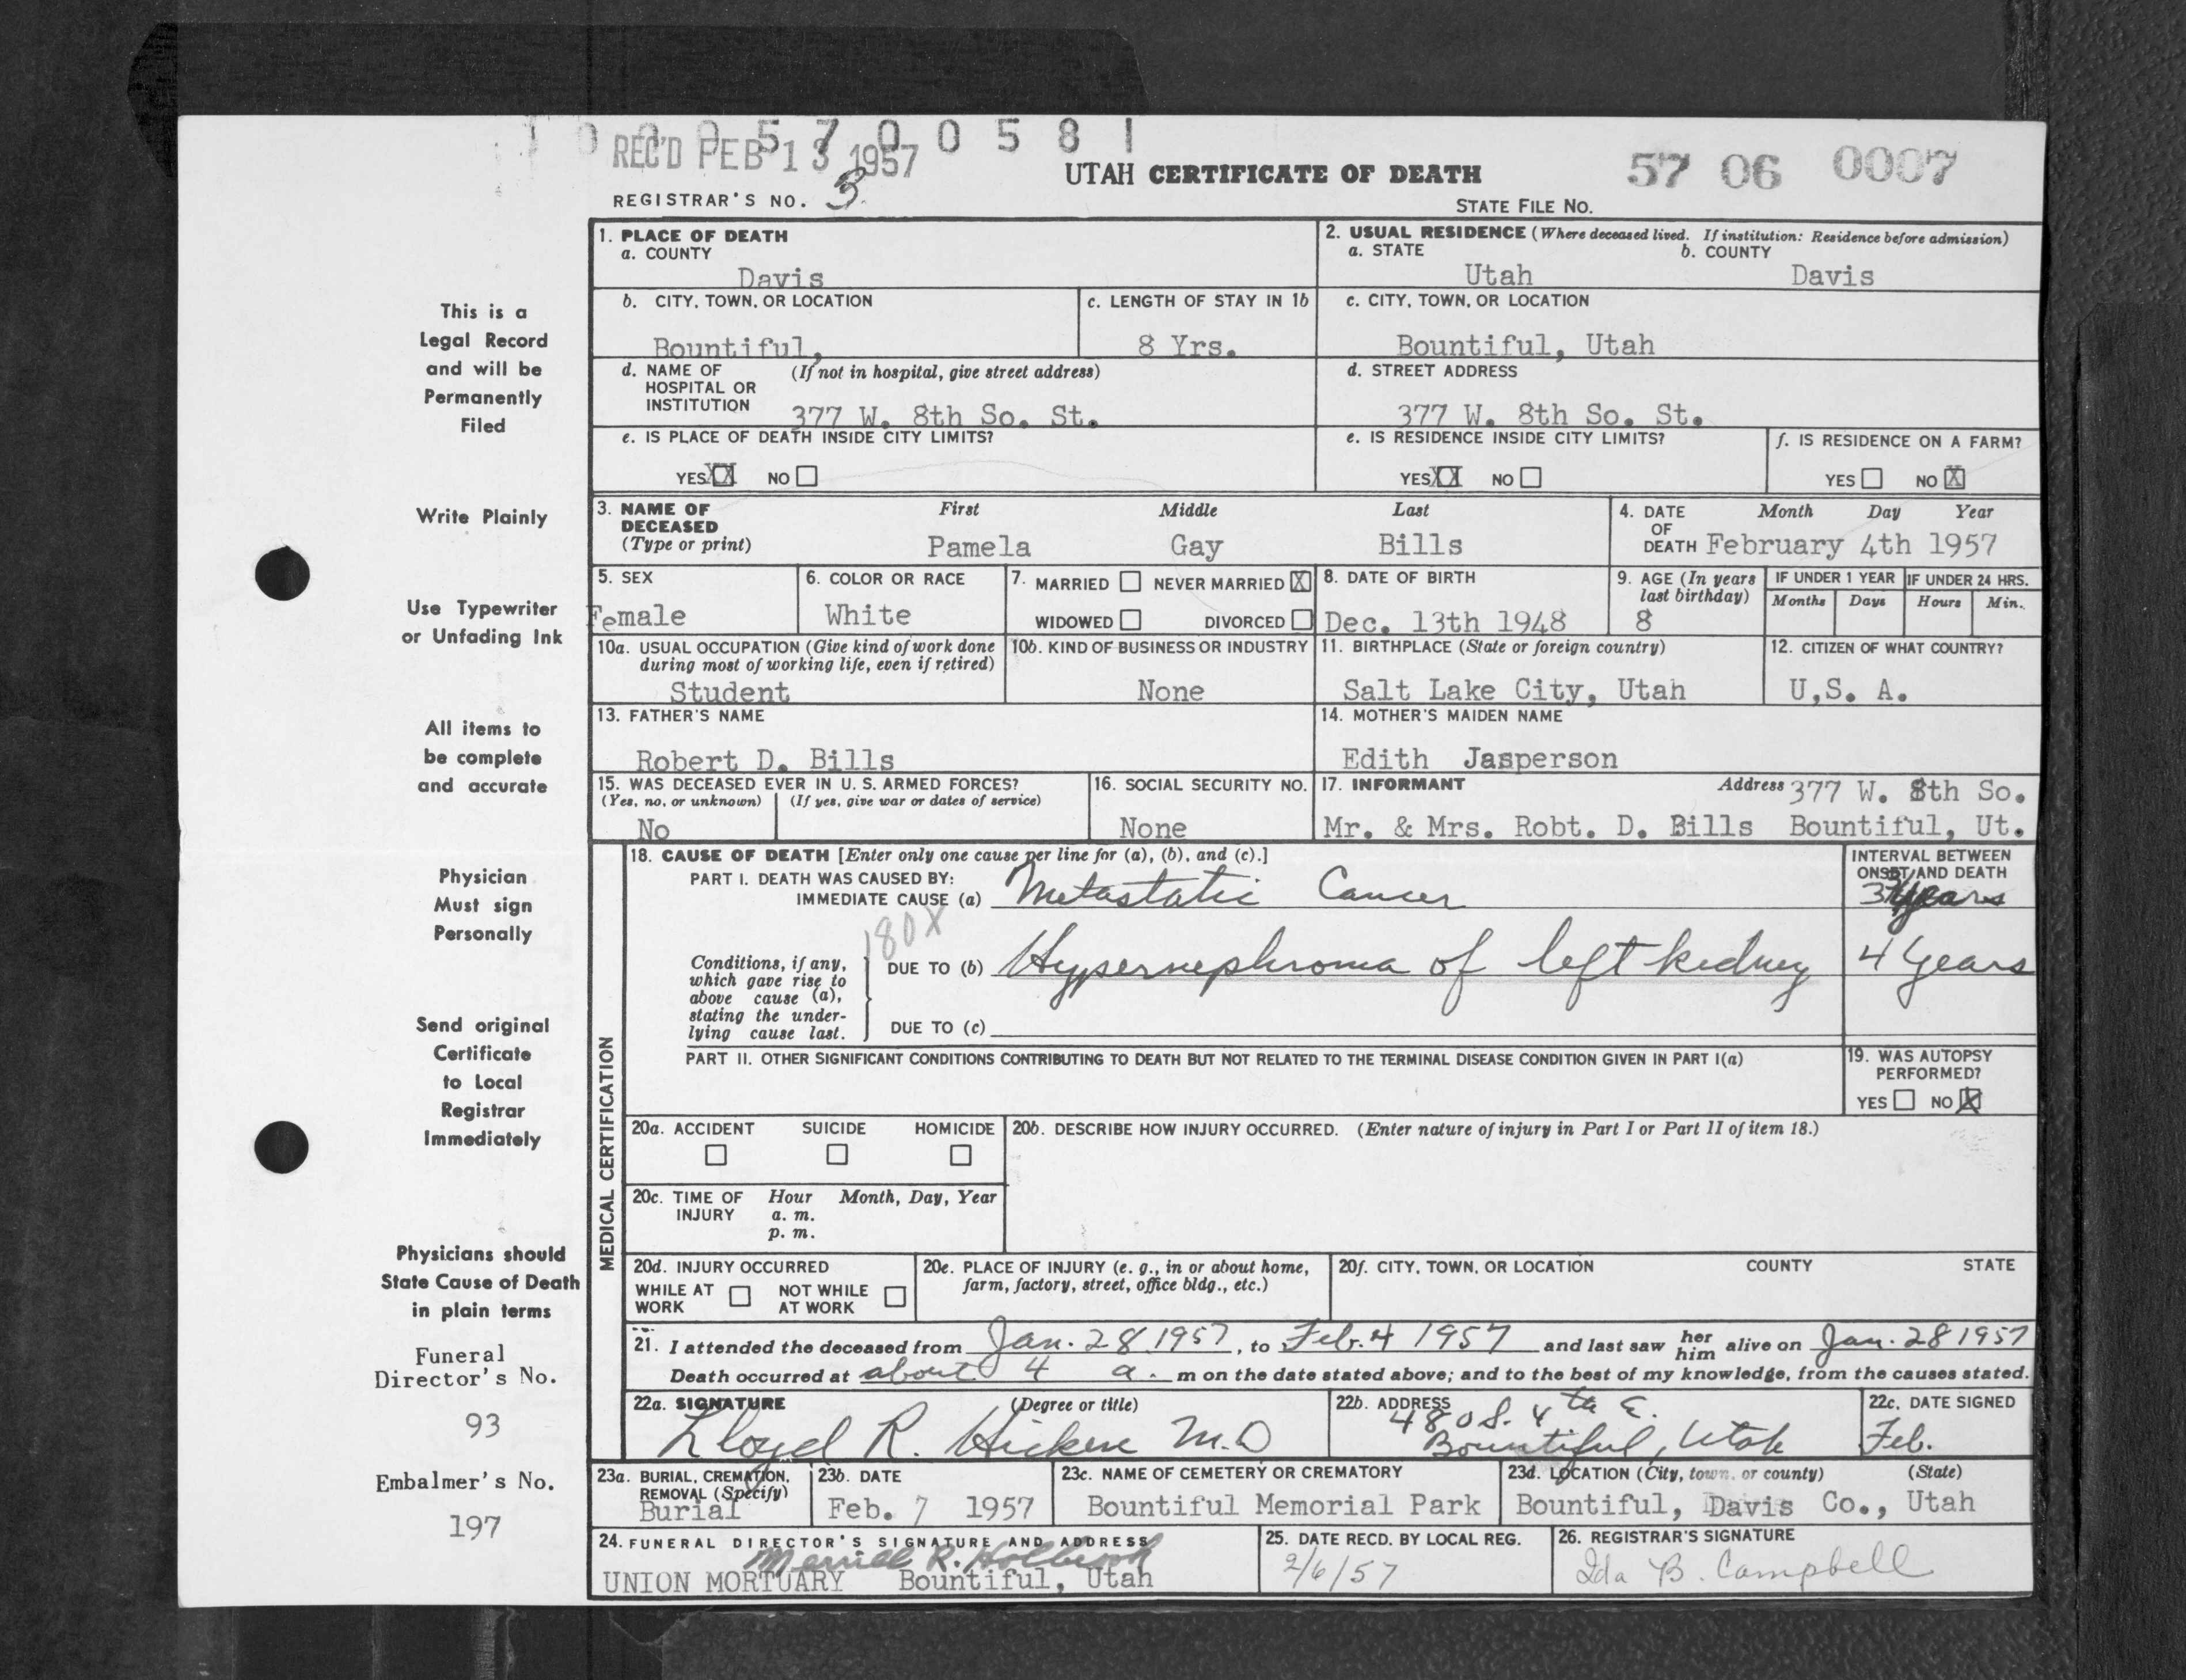 1 0 0 0 5 7 0 0 5 8 1
REC'D FEB 13 1957
UTAH CERTIFICATE OF DEATH
57 06 0007
REGISTRAR'S NO. 3.
STATE FILE NO.
1. PLACE OF DEATH
a. COUNTY
Davis
2. USUAL RESIDENCE (Where deceased lived. If institution: Residence before admission)
a. STATE b. COUNTY
Utah Davis
b. CITY, TOWN, OR LOCATION
Bountiful,
c. LENGTH OF STAY IN 1b
8 Yrs.
c. CITY, TOWN, OR LOCATION
Bountiful, Utah
d. NAME OF (If not in hospital, give street address)
HOSPITAL OR
INSTITUTION 377 W. 8th So. St.
d. STREET ADDRESS
377 W. 8th So. St.
e. IS PLACE OF DEATH INSIDE CITY LIMITS?
YES XX NO
e. IS RESIDENCE INSIDE CITY LIMITS?
YES XX NO
f. IS RESIDENCE ON A FARM?
YES NO X
3. NAME OF First Middle Last
DECEASED
(Type or print) Pamela Gay Bills
4. DATE Month Day Year
OF
DEATH February 4th 1957
5. SEX
Female
6. COLOR OR RACE
White
7. MARRIED NEVER MARRIED X
WIDOWED DIVORCED
8. DATE OF BIRTH
Dec. 13th 1948
9. AGE (In years
last birthday)
8
IF UNDER 1 YEAR
Months Days
IF UNDER 24 HRS.
Hours Min.
10a. USUAL OCCUPATION (Give kind of work done
during most of working life, even if retired)
Student
10b. KIND OF BUSINESS OR INDUSTRY
None
11. BIRTHPLACE (State or foreign country)
Salt Lake City, Utah
12. CITIZEN OF WHAT COUNTRY?
U,S. A.
13. FATHER'S NAME
Robert D. Bills
14. MOTHER'S MAIDEN NAME
Edith Jasperson
15. WAS DECEASED EVER IN U. S. ARMED FORCES?
(Yes, no, or unknown) (If yes, give war or dates of service)
No
16. SOCIAL SECURITY NO.
None
17. INFORMANT Address 377 W. 8th So.
Mr. & Mrs. Robt. D. Bills Bountiful, Ut.
MEDICAL CERTIFICATION
18. CAUSE OF DEATH [Enter only one cause per line for (a), (b), and (c).]
PART I. DEATH WAS CAUSED BY:
IMMEDIATE CAUSE (a) Metastatic Cancer
INTERVAL BETWEEN
ONSET AND DEATH
years
180X
Conditions, if any,
which gave rise to
above cause (a),
stating the under-
lying cause last.
DUE TO (b) Hypernephroma of left kidney 4 years
DUE TO (c)
PART II. OTHER SIGNIFICANT CONDITIONS CONTRIBUTING TO DEATH BUT NOT RELATED TO THE TERMINAL DISEASE CONDITION GIVEN IN PART I(a)
19. WAS AUTOPSY
PERFORMED?
YES NO X
20a. ACCIDENT SUICIDE HOMICIDE
20b. DESCRIBE HOW INJURY OCCURRED. (Enter nature of injury in Part I or Part II of item 18.)
20c. TIME OF Hour Month, Day, Year
INJURY a. m.
p. m.
20d. INJURY OCCURRED
WHILE AT NOT WHILE
WORK AT WORK
20e. PLACE OF INJURY (e. g., in or about home,
farm, factory, street, office bldg., etc.)
20f. CITY, TOWN, OR LOCATION COUNTY STATE
21. I attended the deceased from Jan. 28 1957, to Feb. 4 1957 and last saw her him alive on Jan. 28 1957
Death occurred at about 4 a. m on the date stated above; and to the best of my knowledge, from the causes stated.
22a. SIGNATURE (Degree or title)
Lloyd R. Hicken M.D
22b. ADDRESS
480 S. 4th E.
Bountiful, Utah
22c. DATE SIGNED
Feb.
23a. BURIAL, CREMATION,
REMOVAL (Specify)
Burial
23b. DATE
Feb. 7 1957
23c. NAME OF CEMETERY OR CREMATORY
Bountiful Memorial Park
23d. LOCATION (City, town, or county) (State)
Bountiful, Davis Co., Utah
24. FUNERAL DIRECTOR'S SIGNATURE AND ADDRESS
Merrill R. Holbrook
UNION MORTUARY Bountiful, Utah
25. DATE RECD. BY LOCAL REG.
2/6/57
26. REGISTRAR'S SIGNATURE
Ida B. Campbell
This is a
Legal Record
and will be
Permanently
Filed
Write Plainly
Use Typewriter
or Unfading Ink
All items to
be complete
and accurate
Physician
Must sign
Personally
Send original
Certificate
to Local
Registrar
Immediately
Physicians should
State Cause of Death
in plain terms
Funeral
Director's No.
93
Embalmer's No.
197